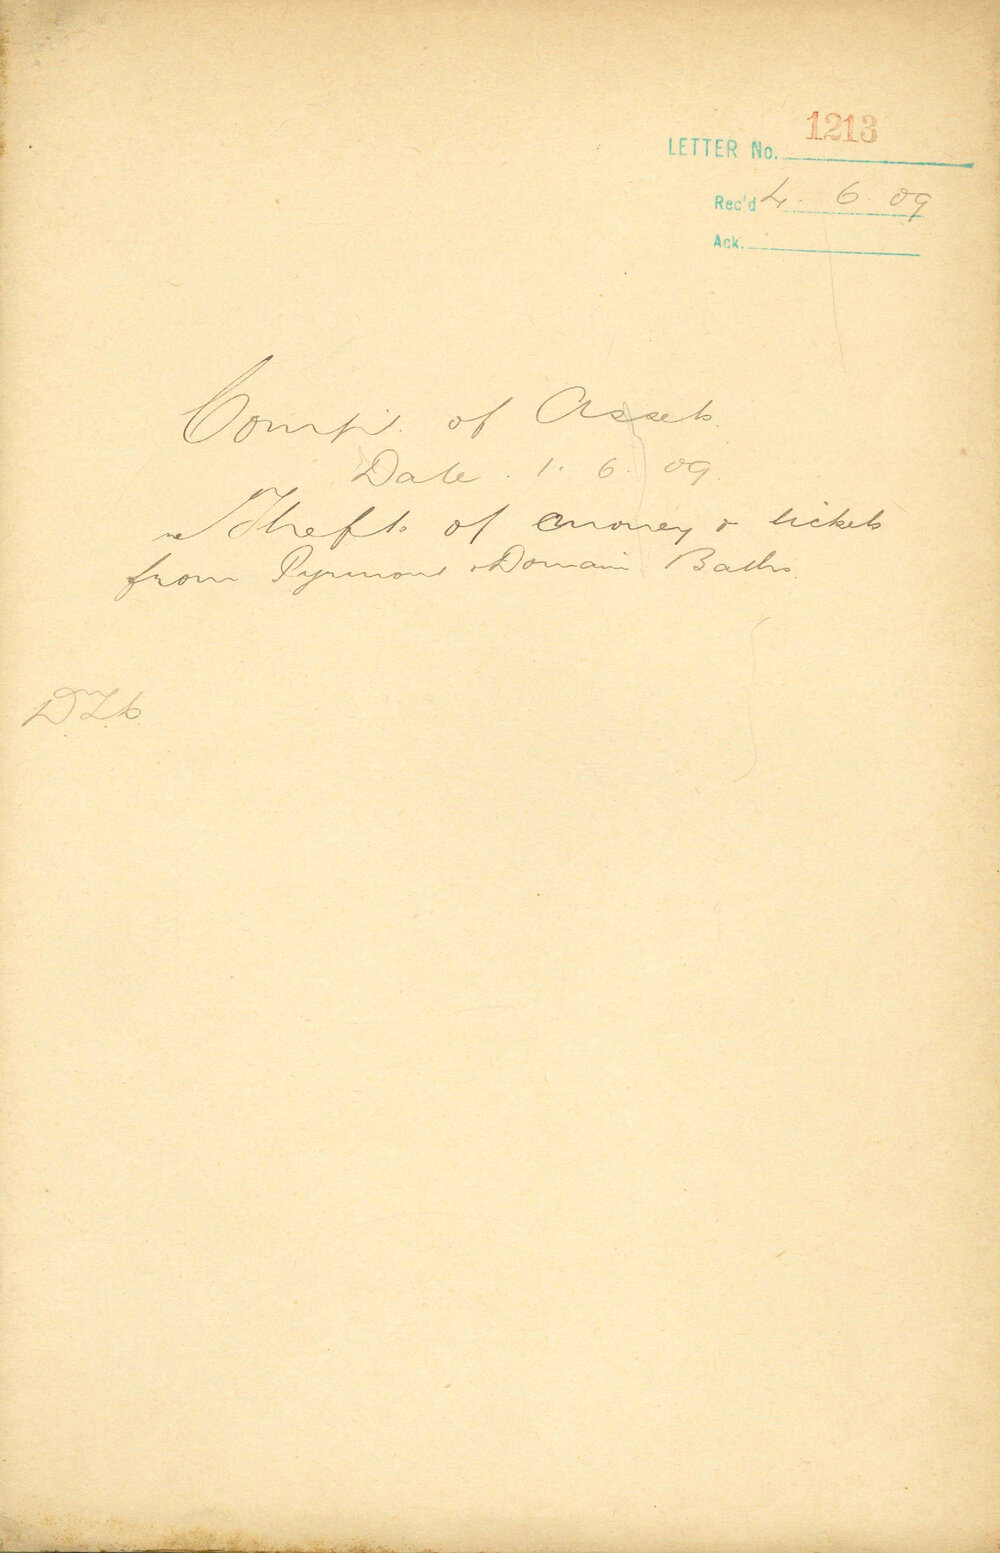 LETTER No. 1213
Rec'd 4. 6. 09
Ack.
Compt. of Assets.
Date. 1. 6. 09.
re Thefts of money & tickets
from Pyrmont & Domain Baths.